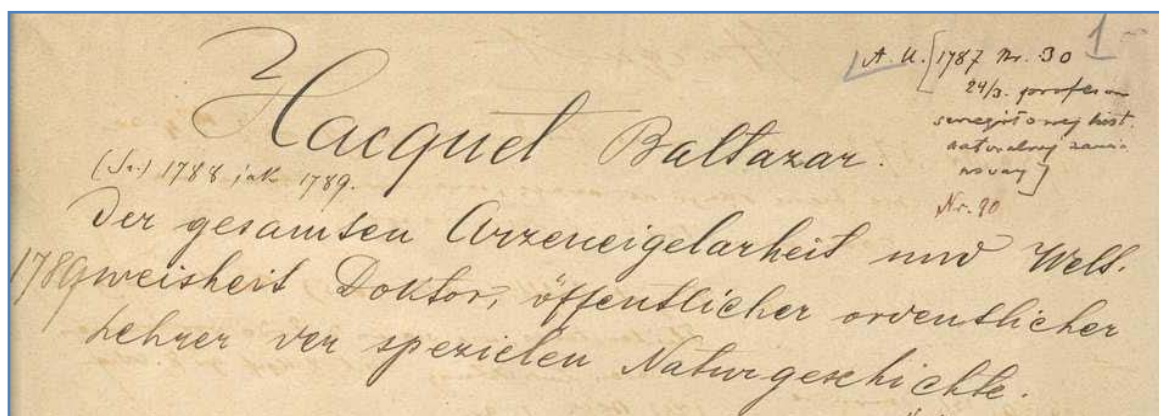 1
A. U. [1787 Nr. 30
24/3. profesor
historyi
naturalnej miano
wany]
Nr. 90
Hacquet Baltazar.
(Sr.) 1788 jak 1789.
Der gesamten Arzeneigelarheit und Welt.
1789 weisheit Doktor, öffentlicher ordentlicher
Lehrer der spezielen Naturgeschichte.